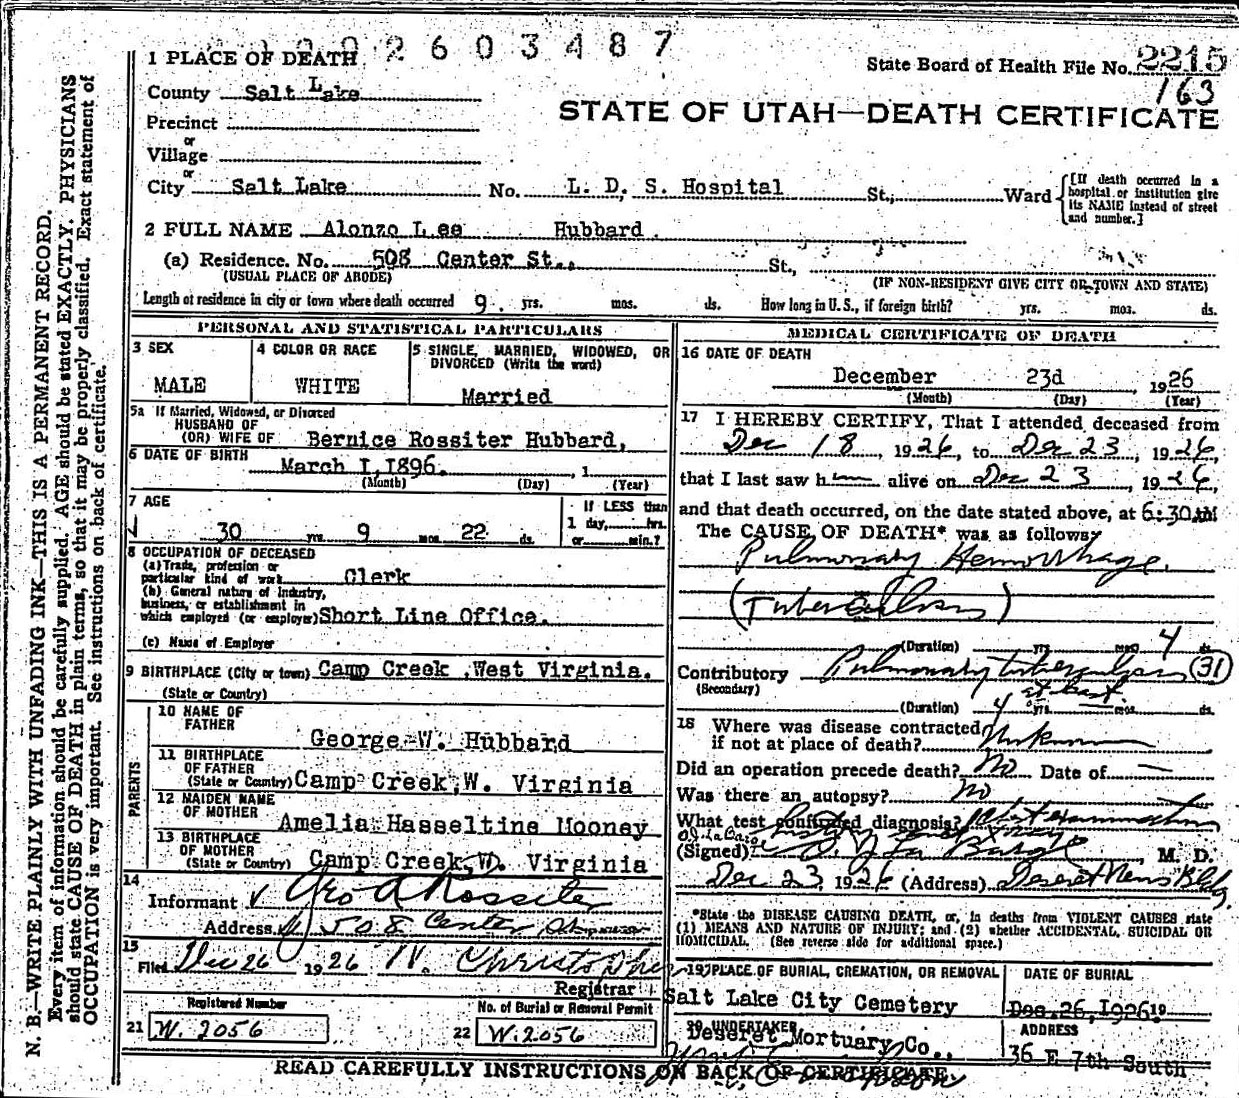 2603487
State Board of Health File No. 2215
163
1 PLACE OF DEATH
County Salt Lake
STATE OF UTAH—DEATH CERTIFICATE
Precinct
or
Village
or
City Salt Lake No. L. D. S. Hospital St., Ward
[If death occurred in a hospital or institution give its NAME instead of street and number.]
2 FULL NAME Alonzo Lee Hubbard
(a) Residence. No. 508 Center St., St.,
(USUAL PLACE OF ABODE) (IF NON-RESIDENT GIVE CITY OR TOWN AND STATE)
Length of residence in city or town where death occurred 9 yrs. mos. ds. How long in U. S., if foreign birth? yrs. mos. ds.
PERSONAL AND STATISTICAL PARTICULARS
3 SEX
MALE
4 COLOR OR RACE
WHITE
5 SINGLE, MARRIED, WIDOWED, OR DIVORCED (Write the word)
Married
5a If Married, Widowed, or Divorced
HUSBAND OF
(OR) WIFE OF Bernice Rossiter Hubbard,
6 DATE OF BIRTH March I,I896. , 1
(Month) (Day) (Year)
7 AGE
30 yrs. 9 mos. 22 ds.
If LESS than
1 day, hrs.
or min.?
8 OCCUPATION OF DECEASED
(a) Trade, profession or
particular kind of work Clerk
(b) General nature of Industry,
business, or establishment in
which employed (or employer) Short Line Office.
(c) Name of Employer
9 BIRTHPLACE (City or town) Camp Creek ,West Virginia.
(State or Country)
PARENTS
10 NAME OF
FATHER George W. Hubbard
11 BIRTHPLACE
OF FATHER
(State or Country) Camp Creek,W. Virginia
12 MAIDEN NAME
OF MOTHER Amelia Hasseltine Mooney
13 BIRTHPLACE
OF MOTHER
(State or Country) Camp Creek,W. Virginia
14
Informant Geo A Rossiter
Address 508 Center
15
Filed Dec 26 1926 W. Christopher
Registrar
Registered Number
21 W. 2056
No. of Burial or Removal Permit
22 W. 2056
MEDICAL CERTIFICATE OF DEATH
16 DATE OF DEATH
December 23d , 1926
(Month) (Day) (Year)
17 I HEREBY CERTIFY, That I attended deceased from
Dec 18 1926, to Dec 23, 1926,
that I last saw h alive on Dec 23, 1926,
and that death occurred, on the date stated above, at 6:30
The CAUSE OF DEATH* was as follows:
Pulmonary Hemorrhage.
(Tuberculosis)
(Duration) yrs. mos. 4 ds.
Contributory Pulmonary tuberculosis (31)
(Secondary)
at least
(Duration) 4 yrs. mos. ds.
18 Where was disease contracted
if not at place of death? Unknown
Did an operation precede death? No Date of —
Was there an autopsy? No
What test confirmed diagnosis?
(Signed) O. J. La Barge, M. D.
Dec 23 1926 (Address) Deseret News Bldg
*State the DISEASE CAUSING DEATH, or, in deaths from VIOLENT CAUSES, state
(1) MEANS AND NATURE OF INJURY; and (2) whether ACCIDENTAL, SUICIDAL OR
HOMICIDAL. (See reverse side for additional space.)
19 PLACE OF BURIAL, CREMATION, OR REMOVAL
Salt Lake City Cemetery
DATE OF BURIAL
Dec. 26,I926 19
20 UNDERTAKER
Deseret Mortuary Co.,
ADDRESS
36 E 7th South
READ CAREFULLY INSTRUCTIONS ON BACK OF CERTIFICATE.
N. B.—WRITE PLAINLY WITH UNFADING INK—THIS IS A PERMANENT RECORD.
Every item of information should be carefully supplied. AGE should be stated EXACTLY. PHYSICIANS
should state CAUSE OF DEATH in plain terms, so that it may be properly classified. Exact statement of
OCCUPATION is very important. See instructions on back of certificate.